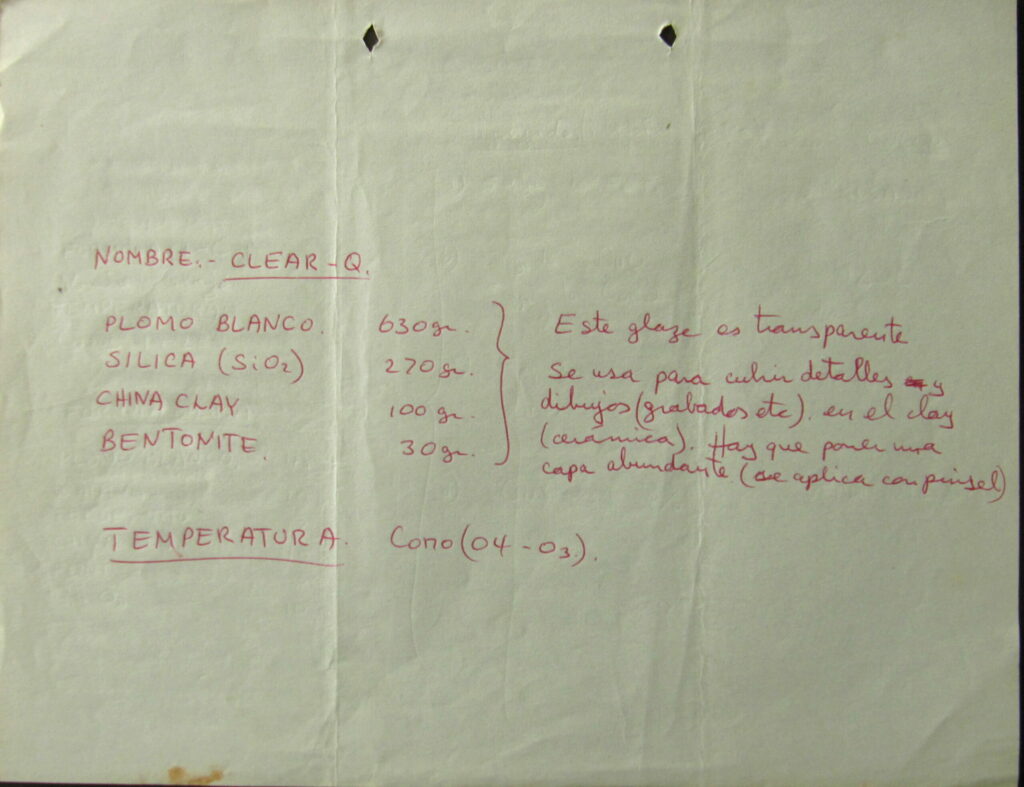 NOMBRE.- CLEAR-Q.
PLOMO BLANCO. 630gr.
SILICA (SiO2) 270gr.
CHINA CLAY 100gr.
BENTONITE. 30gr.
Este glaze es transparente
se usa para cubrir detalles y
dibujos (grabados etc). en el clay
(cerámica). Hay que poner una
capa abundante (se aplica con pinsel)
TEMPERATURA. Cono (04-03).